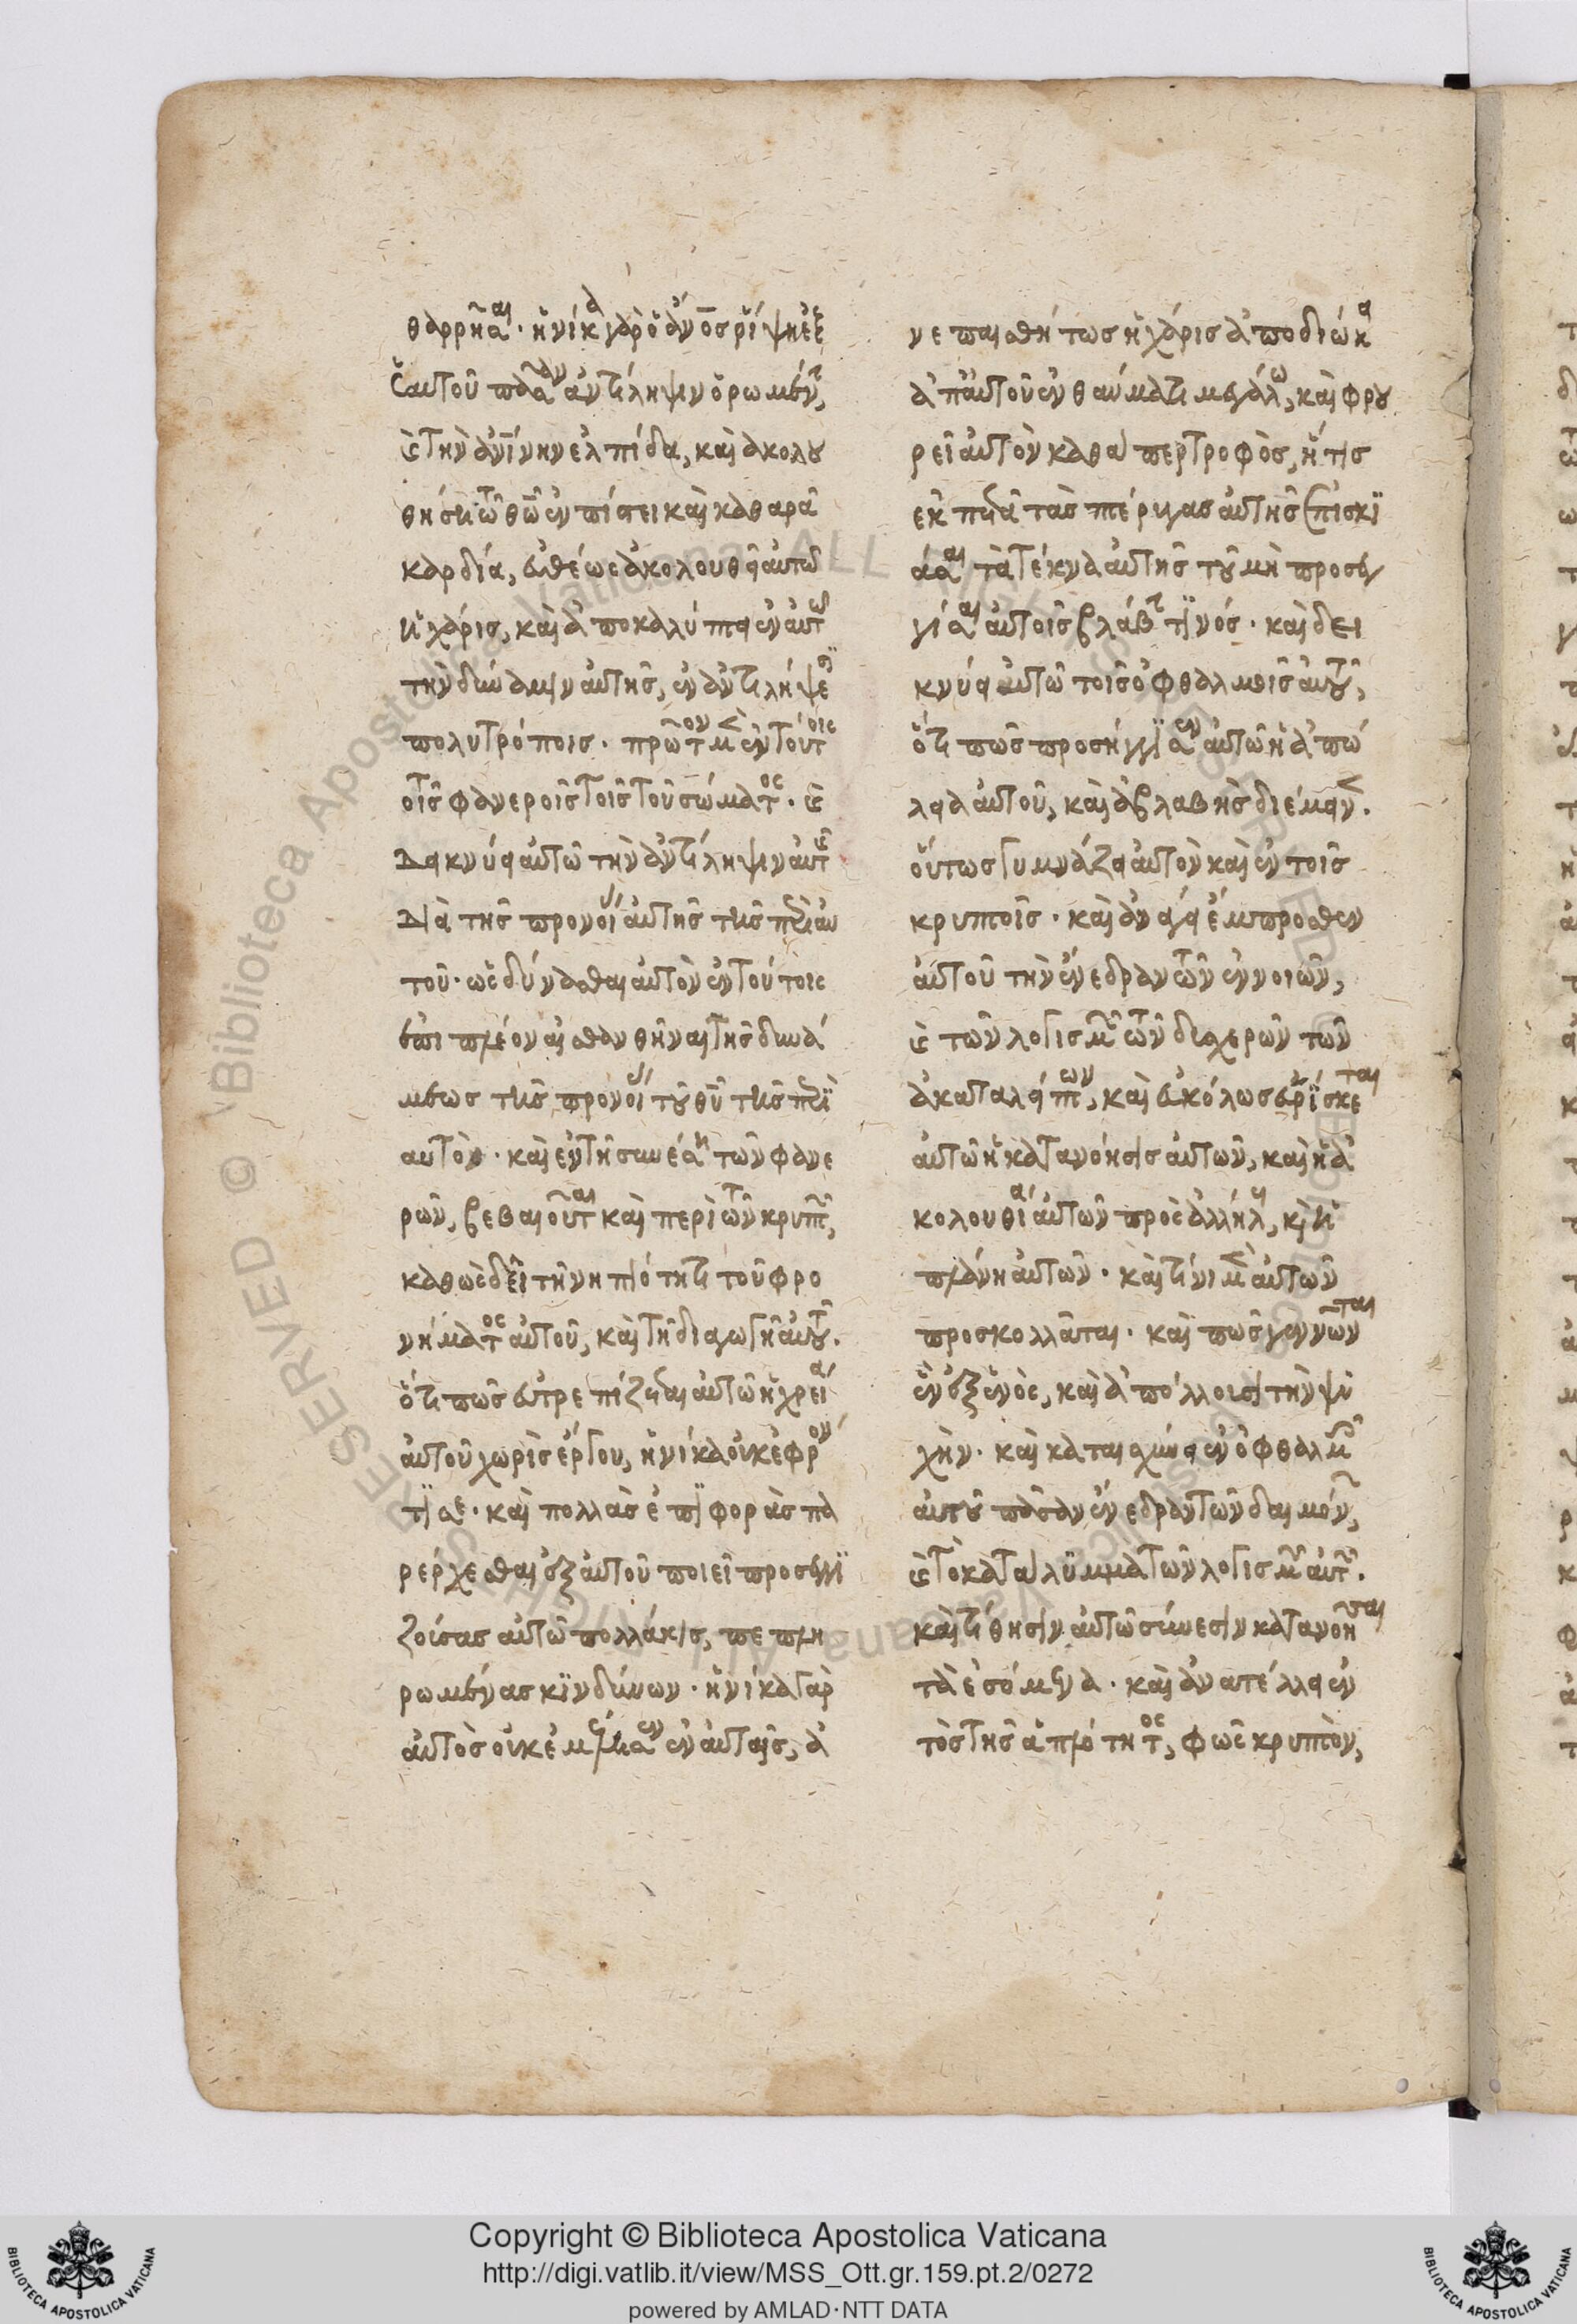 θαρρῆσαι· ἡνίκα γὰρ ὁ ἄνος ῥίψῃ ἐξ
ἑαυτοῦ πᾶσαν ἀντίληψιν ὁρωμένην,
καὶ τὴν ἀνίνην ελπίδα, καὶ ακολου
θήσῃ τῶ θῶ ἐν πίστει καὶ καθαρᾶ
καρδία, εὐθέως ἀκολουθεῖ αὐτῶ
ἡ χάρις, καὶ ἀποκαλύπτει ἐν αὐτῶ
τὴν δύναμιν αὐτῆς, ἐν ἀντιλήψεσι
πολυτρόποις. πρῶτον μὲν ἐν τούτοις
τοῖς φανεροῖς τοῖς τοῦ σώματος. καὶ
δεικνύει αὐτῶ τὴν ἀντίληψιν αὐτῆς
διὰ τῆς προνοίας αὐτῆς τῆς περὶ αὐ
τοῦ· ὡς δύνασθαι αὐτὸν ἐν τούτοις
ἐπι πλέον αἰσθανθῆναι τῆς δυνά
μεως τῆς προνοίας τοῦ θῦ τῆς περὶ
αυτὸν· καὶ εν τῇ συνέσει τῶν φανε
ρῶν, βεβαιοῦται καὶ περὶ τῶν κρυπτῶν,
καθὼς δεῖ τῆ νηπιότητι τοῦ φρο
νήματος αὐτοῦ, καὶ τῆ διαγωγῆ αὐτοῦ.
ὅτι πῶς εὐτρεπίζεται αὐτῶ ἡ χρεία
αὐτοῦ χωρὶς ἔργου, ἡνίκα οὐκ ἐφρόν
τισε· καὶ πολλὰς ἐπιφορὰς πα
ρέρχεσθαι ἐξ αὐτοῦ ποιεῖ προσεγγι
ζούσας αὐτῶ πολλάκις, πεπλη
ρωμένας κινδύνων· ἡνίκα γὰρ
αὐτὸς οὐκ ἐμερίμνησεν ἐν αὐταῖς, ἀ
νεπαισθήτως ἡ χάρις ἀποδιώκει
ἀπ αὐτοῦ ἐν θαύματι μεγάλω, καὶ φρου
ρεῖ αὐτὸν καθάπερ τροφὸς, ἥτις
εκπετᾶ τὰς πτέρυγας αὐτῆς ἐπισκι
άσαι τὰ τέκνα αὐτῆς τοῦ μὴ προσεγ
γίσαι αὐτοῖς βλάβην τινός· καὶ δει
κνύει αὐτῶ τοῖς ὀφθαλμοῖς αὐτοῦ,
ὅτι πῶς προσήγγισεν αὐτῶ ἡ ἀπώ
λεια αὐτοῦ, καὶ ἀβλαβὴς διέμεινεν.
οὕτως γυμνάζει αὐτὸν καὶ ἐν τοῖς
κρυπτοῖς· καὶ ἀνοίγει ἔμπροσθεν
αὐτοῦ τὴν ἐνεδραν τῶν ἐννοιῶν,
καὶ τῶν λογισμῶν τῶν δυσχερῶν τῶν
ἀκαταλήπτων, καὶ εὐκόλως εὑρίσκεται
αὐτῶ ἡ κατανόησις αὐτῶν, καὶ ἡ ἀ
κολουθία αὐτῶν πρὸς ἀλλήλους, καὶ ἡ
πλάνη αὐτῶν· καὶ τίνι μὲν αὐτῶν
προσκολλᾶται· καὶ πῶς γεννῶνται
ἓν ἐξ ἑνὸς, καὶ ἀπόλλουσι τὴν ψυ
χὴν· καὶ καταισχύνει ἐν ὀφθαλμοῖς
αὐτοῦ πᾶσαν ἐνεδραν τῶν δαιμόνων,
καὶ τὸ κατάλυμμα τῶν λογισμῶν αὐτῶν.
καὶ τίθησιν αὐτῶ σύνεσιν κατανοῆσαι
τὰ ἐσόμενα· καὶ ἀνατέλλει ἐν
τὸς τῆς ἁπλότητος, φῶς κρυπτὸν,
Copyright © Biblioteca Apostolica Vaticana
http://digi.vatlib.it/view/MSS_Ott.gr.159.pt.2/0272
powered by AMLAD·NTT DATA